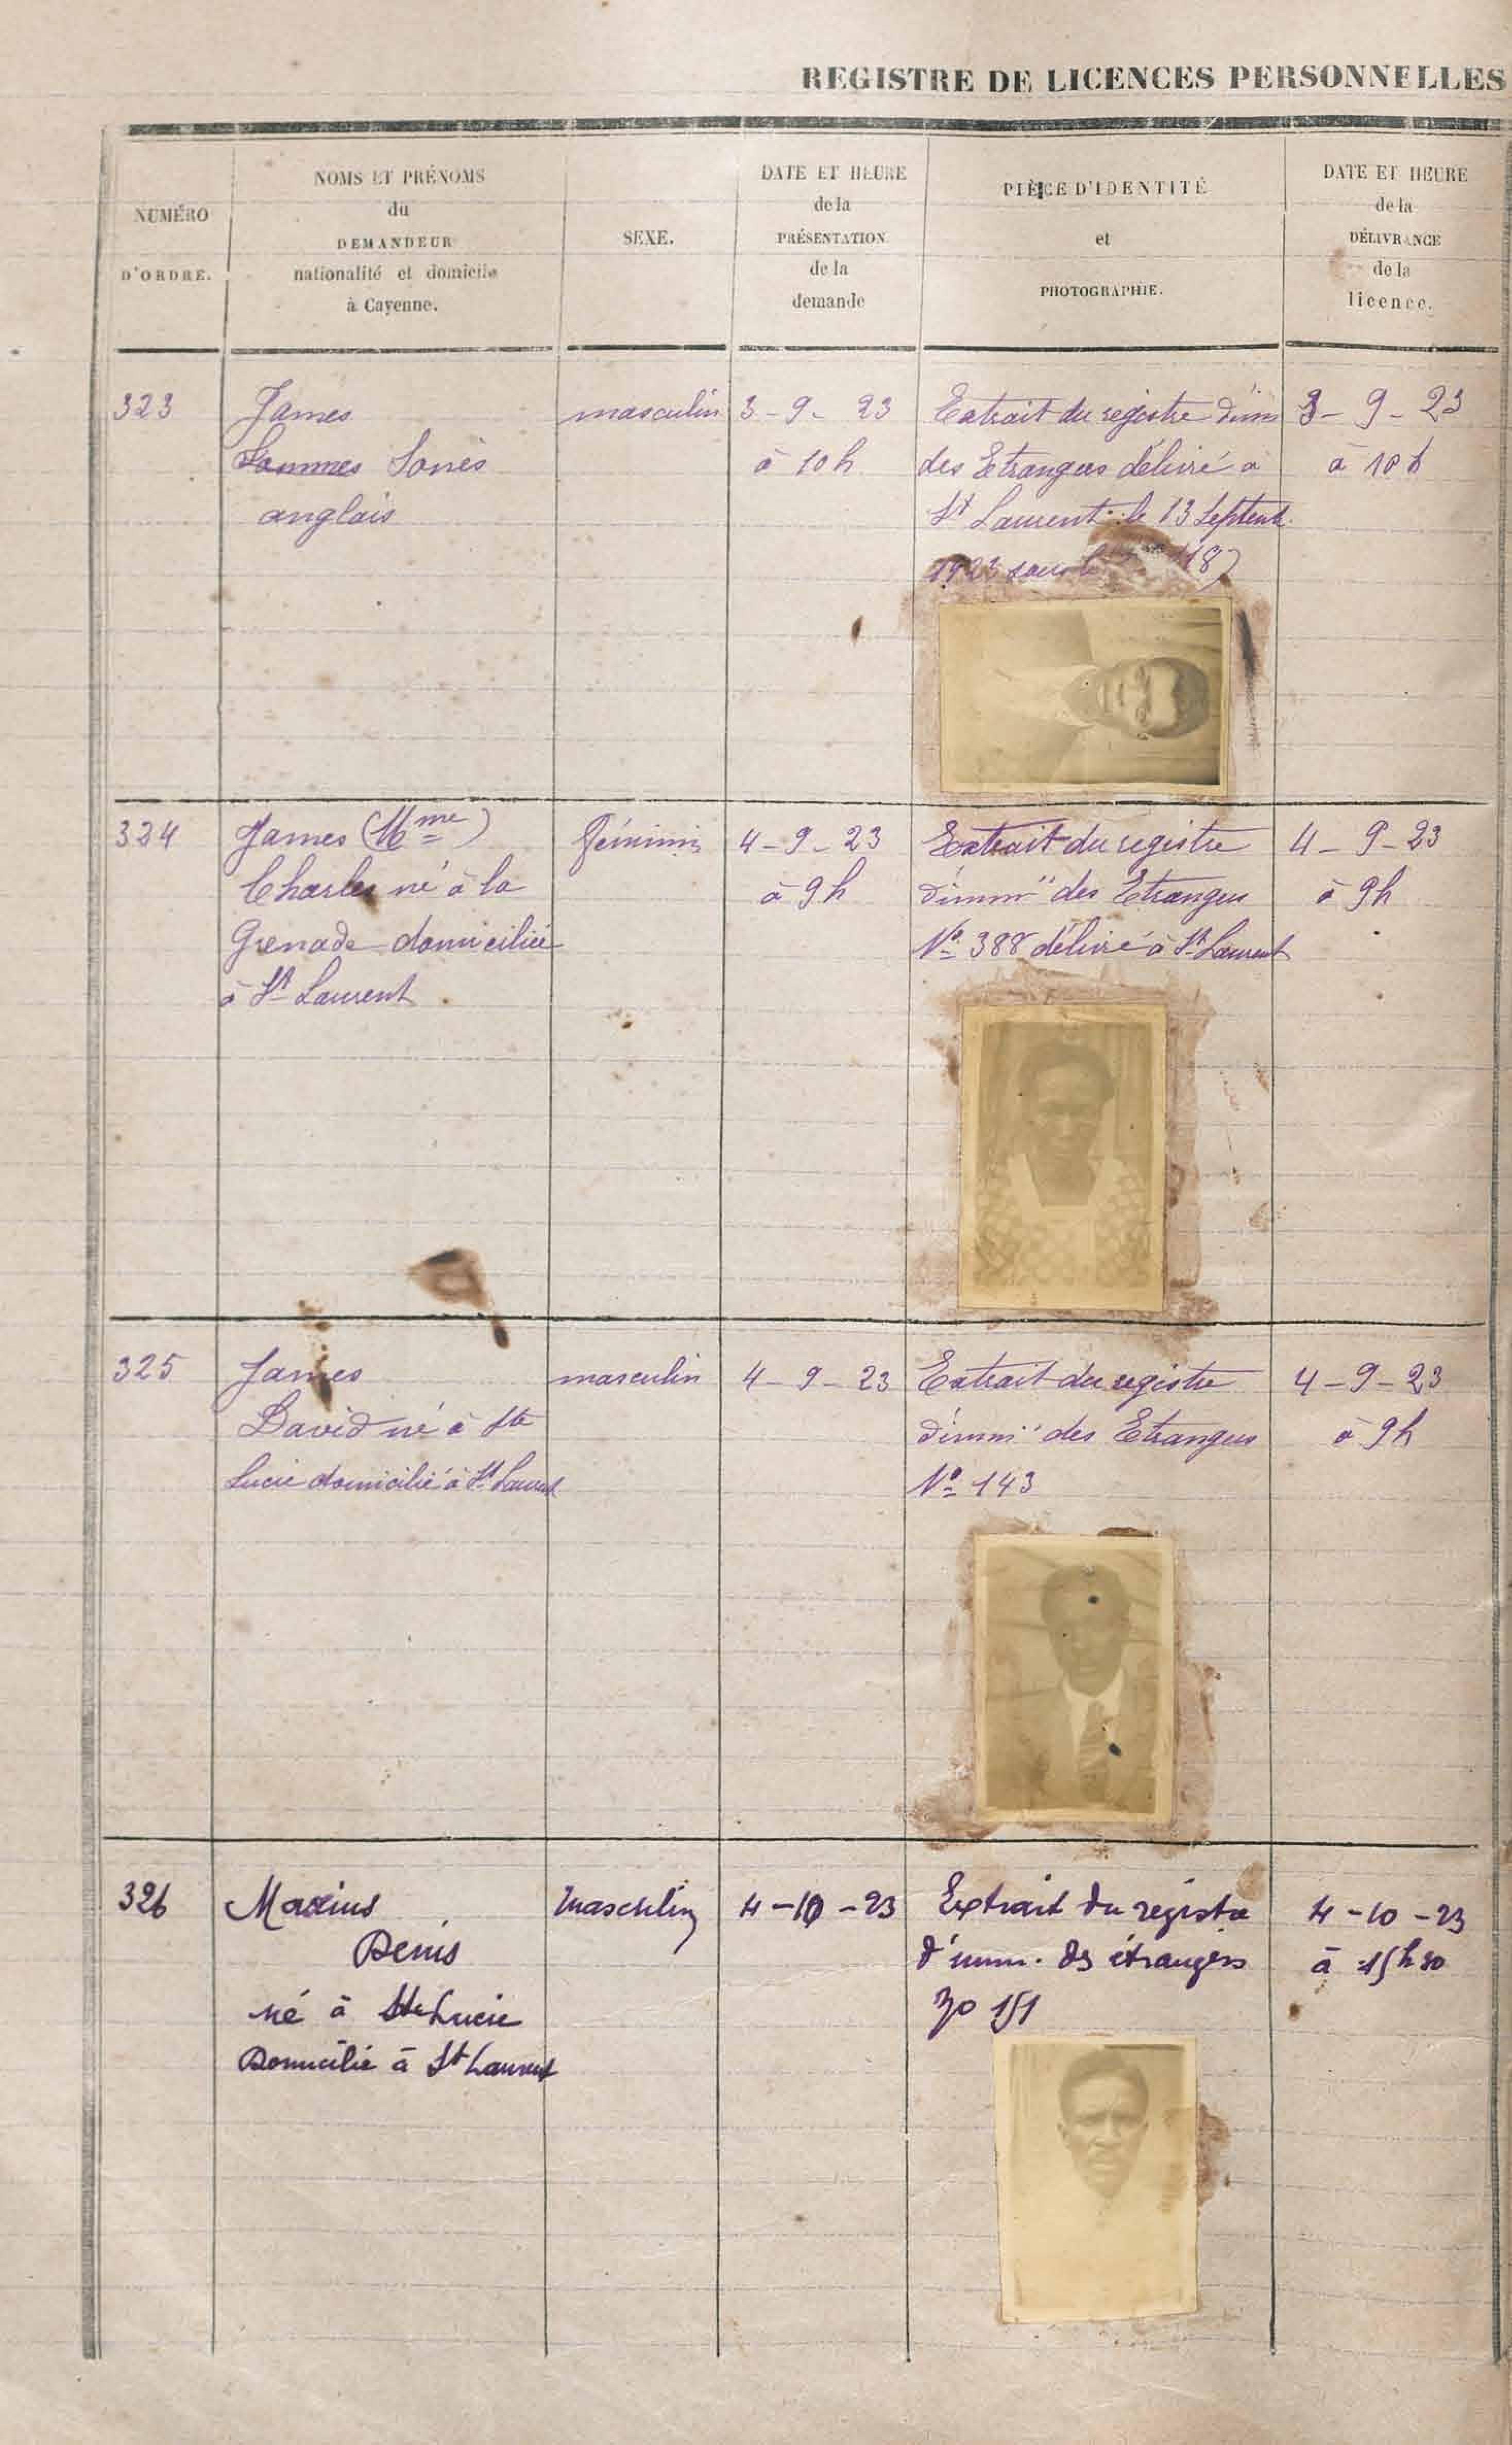 REGISTRE DE LICENCES PERSONNELLES
NUMÉRO
D'ORDRE.
NOMS ET PRÉNOMS
du
DEMANDEUR
nationalité et domicile
à Cayenne.
SEXE.
DATE ET HEURE
de la
PRÉSENTATION
de la
demande
PIÈCE D'IDENTITÉ
et
PHOTOGRAPHIE.
DATE ET HEURE
de la
DÉLIVRANCE
de la
licence.
323
James
anglais
masculin
3-9-23
à 10 h
Extrait du registre d'imm
des Etrangers délivré à
St Laurent le 13 Septemb
1923 sous le
3-9-23
à 10 h
324
James (Mme)
Charles né à la
Grenade domiciliée
à St Laurent
féminin
4-9-23
à 9 h
Extrait du registre
d'imm" des Etrangers
No 388 délivré à St Laurent
4-9-23
à 9h
325
James
David né à Ste
Lucie domicilié à St Laurent
masculin
4-9-23
Extrait du registre
d'imm" des Etrangers
No 143
4-9-23
à 9h
326
Maxius
Denis
né à Ste Lucie
Domicilié à St Laurent
Masculin
4-10-23
Extrait du registre
d'imm. des étrangers
151
4-10-23
à 15h30